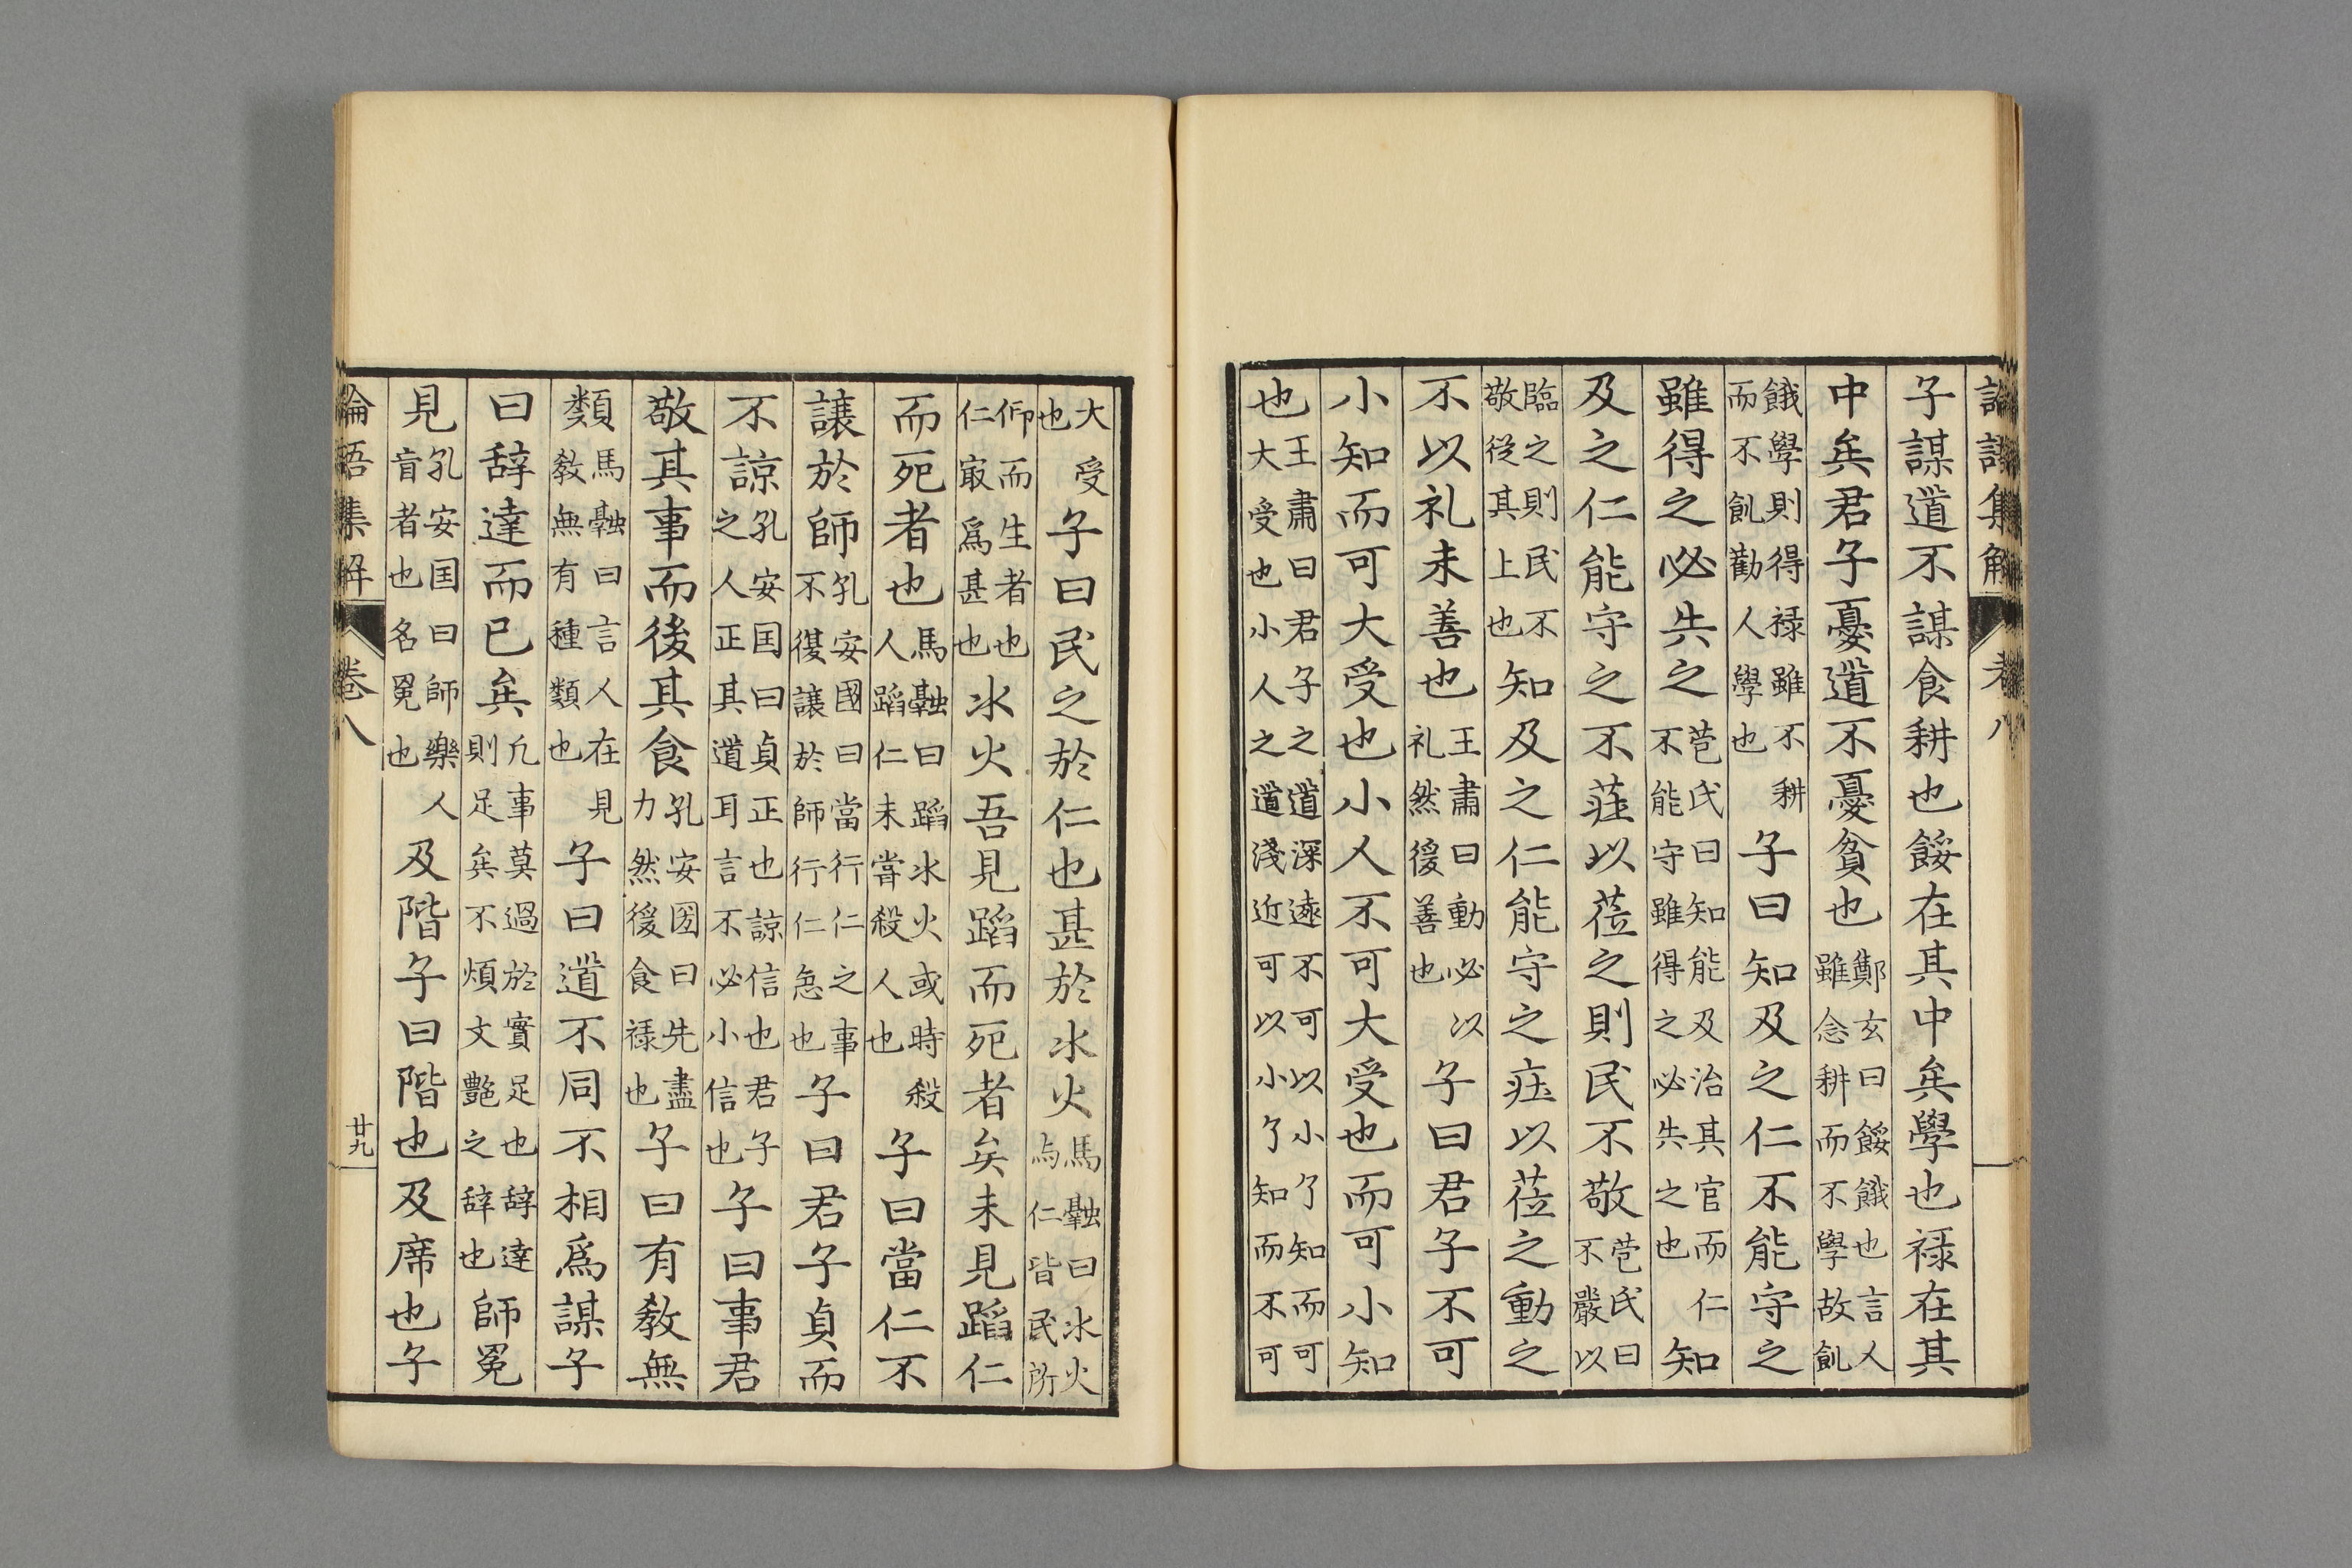 論語集解 卷八
子謀道不謀食耕也餒在其中矣學也禄在其
中矣君子憂道不憂貧也鄭玄曰餒餓也言人雖念耕而不學故飢
餓學則得禄雖不耕而不飢勸人學也子曰知及之仁不能守之
雖得之必失之苞氏曰知能及治其官而仁不能守雖得之必失之也知
及之仁能守之不莊以莅之則民不敬苞氏曰不嚴以
臨之則民不敬從其上也知及之仁能守之庄以莅之動之
不以礼未善也王肅曰動必以礼然後善也子曰君子不可
小知而可大受也小人不可大受也而可小知
也王肅曰君子之道深遠不可以小了知而可大受也小人之道淺近可以小了知而不可
大受也子曰民之於仁也甚於水火馬融曰水火与仁皆民所
仰而生者也仁㝡爲甚也水火吾見蹈而死者矣未見蹈仁
而死者也馬融曰蹈水火或時殺人蹈仁未嘗殺人也子曰當仁不
讓於師孔安國曰當行仁之事不復讓於師行仁急也子曰君子貞而
不諒孔安国曰貞正也諒信也君子之人正其道耳言不必小信也子曰事君
敬其事而後其食孔安国曰先盡力然後食禄也子曰有教無
類馬融曰言人在見教無有種類也子曰道不同不相爲謀子
曰辞達而已矣凢事莫過於實足也辞達則足矣不煩文艶之辞也師冕
見孔安国曰師樂人盲者也名冕也及階子曰階也及席也子
論語集解 卷八 廿九